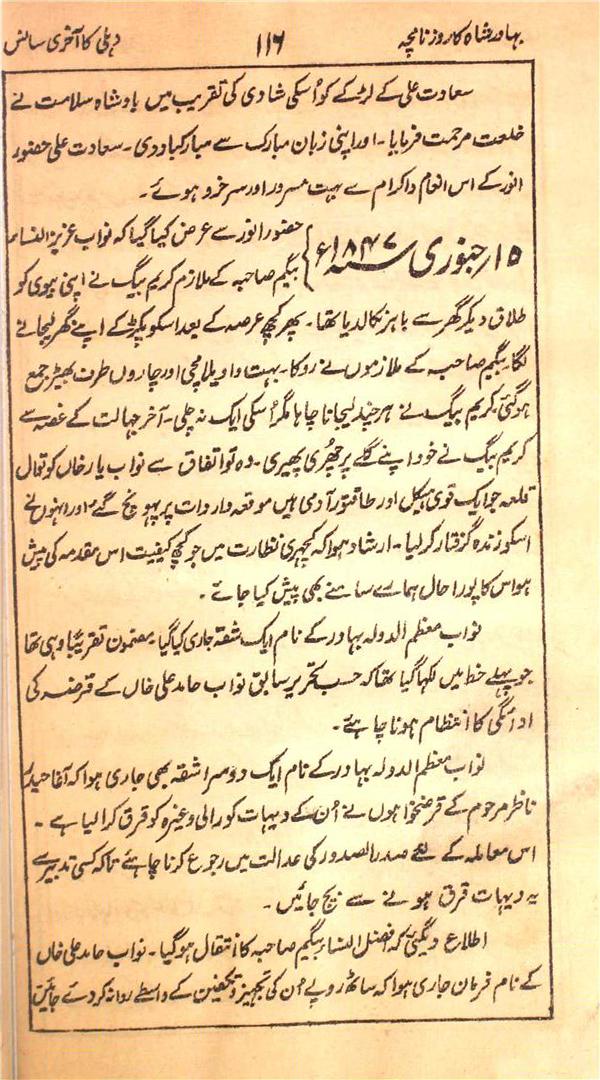 بہادر شاہ کا روزنامچہ ۱۱۶ دہلی کا آخری سانس
سعادت علی کے لڑکے کو اُسکی شادی کی تقریب میں بادشاہ سلامت نے
خلعت مرحمت فرمایا۔ اور اپنی زبان مبارک سے مبارکباد دی۔ سعادت علی حضور
انور کے اس انعام و اکرام سے بہت مسرور اور سرخرو ہوئے۔
۱۵ر جنوری ۱۸۴۷ء
حضور انور سے عرض کیا گیا کہ نواب عزیز النساء
بیگم صاحبہ کے ملازم کریم بیگ نے اپنی بیوی کو
طلاق دیکر گھر سے باہر نکالدیا تھا۔ پھر کچھ عرصہ کے بعد اسکو پکڑ کے اپنے گھر لیجانے
لگا۔ بیگم صاحبہ کے ملازموں نے روکا۔ بہت واویلا مچی اور چاروں طرف بھیڑ جمع
ہو گئی کریم بیگ نے ہر چند لیجانا چاہا مگر اُسکی ایک نہ چلی۔ آخر جہالت کے غصہ سے
کریم بیگ نے خود اپنے گلے پر چھُری پھیری۔ وہ تو اتفاق سے نواب یار خاں کوتوال
قلعہ جو ایک قوی ہیکل اور طاقتور آدمی ہیں موقعہ واردات پر پہونچ گئے اور انہوں نے
اسکو زندہ گرفتار کر لیا۔ ارشاد ہوا کہ کچہری نظارت میں جو کچھ کیفیت اس مقدمہ کی پیش
ہو اس کا پورا حال ہمارے سامنے بھی پیش کیا جائے۔
نواب معظم الدولہ بہادر کے نام ایک شقہ جاری کیا گیا۔ مضمون تقریباً وہی تھا
جو پہلے خط میں لکھا گیا تھا کہ حسب تحریر سابق نواب حامد علی خاں کے قرضہ کی
ادائگی کا انتظام ہونا چاہئے۔
نواب معظم الدولہ بہادر کے نام ایک دوسرا شقہ بھی جاری ہوا کہ آغا حیدر
ناظر مرحوم کے قرضخواہوں نے اُن کے دیہات کورالی وغیرہ کو قرق کرا لیا ہے۔
اس معاملہ کے لئے صدر الصدور کی عدالت میں رجوع کرنا چاہئے تاکہ کسی تدبیر سے
یہ دیہات قرق ہونے سے بچ جائیں۔
اطلاع دیگئی کہ فضل النساء بیگم صاحبہ کا انتقال ہو گیا۔ نواب حامد علی خاں
کے نام فرمان جاری ہوا کہ ساٹھ روپے اُن کی تجہیز و تکفین کے واسطے روانہ کر دئے جائیں